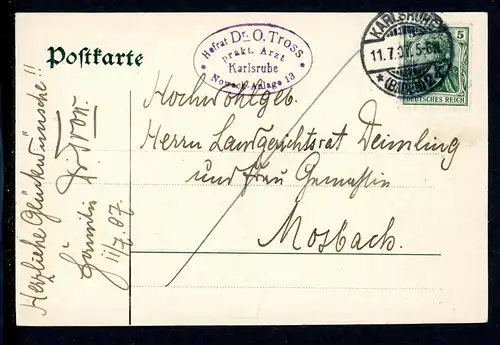 Postkarte
Hofrat Dr. O. Tross
prakt. Arzt
Karlsruhe
Nowack-Anlage 13
KARLSRUHE
11.7.07. 5-6N
*(BADEN)2.
5
DEUTSCHES REICH
Hochwohlgeb.
Herrn Landgerichtsrat Deimling
und Frau Gemahlin
Mosbach.
Herzliche Glückwünsche!!
Familie Dr. Tross.
11/7.07.